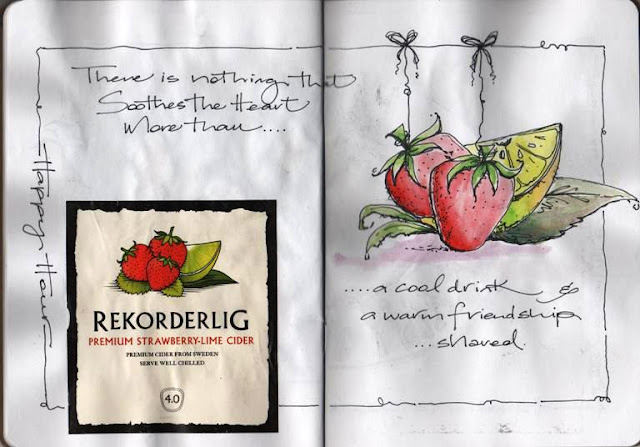 There is nothing that
Soothes the Heart
More than....
Happy Hour
REKORDERLIG
PREMIUM STRAWBERRY-LIME CIDER
PREMIUM CIDER FROM SWEDEN
SERVE WELL CHILLED
4.0
....a cool drink &
a warm friendship
...shared.